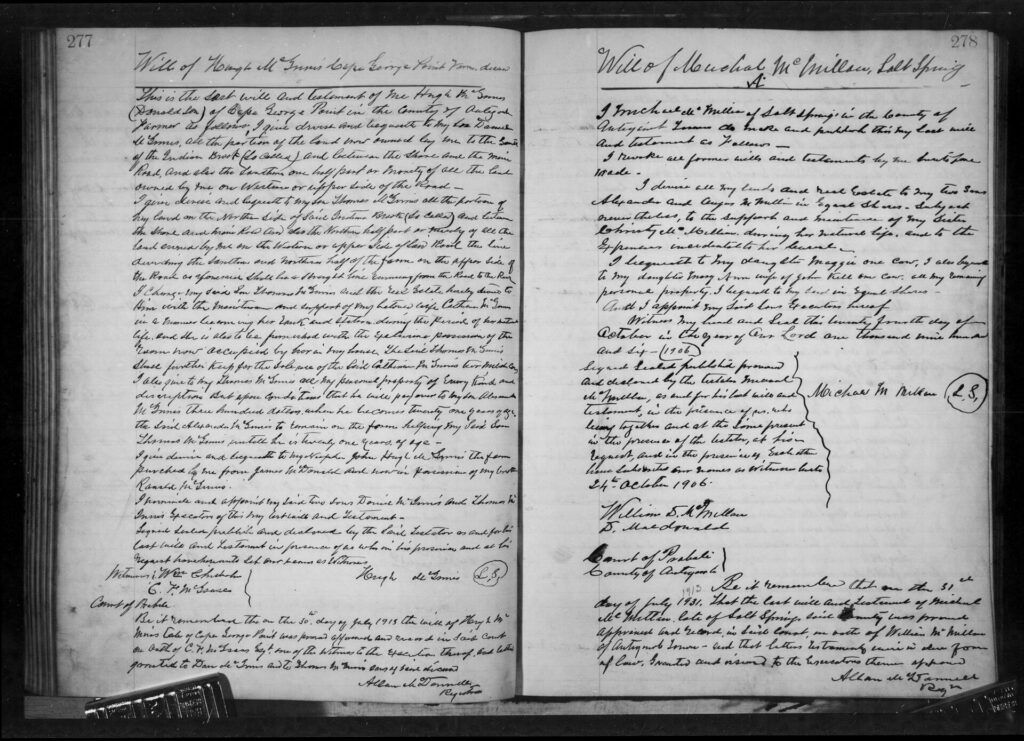 277
Will of Hugh McInnis Cape George Point Farmer deceased
This is the Last will and testament of me Hugh McInnis
(Donald Son) of Cape George Point in the County of Antigonish
Farmer as follows, I give devise and bequeath to my Son Daniel
McInnis, all the portion of the Land now owned by me to the
of the Indian Brook (So Called) and between the Shore and the Main
Road, and also the Southern one half part or moiety of all the land
owned by me on Western or upper side of the Road —
I give devise and bequeath to my Son Thomas McInnis all the portion of
my Land on the Northern Side of Said Indian Brook (So Called) and between
the Shore and main Road and also the Northern half part or moiety of all the
land owned by me on the Western or upper Side of Said Road the line
dividing the Southern and Northern half of the farm on the upper side of
the Road as aforesaid shall be a straight line running from the Road to the Rear
I charge my said Son Thomas McInnis and the Real Estate hereby devised to
him with the maintenance and support of my beloved wife Catherine McInnis
in a manner becoming her rank and station during the Period of her natural
life, and she is also to be furnished with the exclusive possession of the
Room now occupied by her in my house. The Said Thomas McInnis
shall further keep for the sole use of the Said Catherine McInnis one Milch Cow
I also give to my Thomas McInnis all my personal property of Every Kind and
description But upon Condition that he will pay over to my Son Alexander
McInnis Three hundred dollars, when he becomes twenty one years of age
the Said Alexander McInnis to remain on the farm helping my Said Son
Thomas McInnis, untill he is twenty one years of age -
I give devise and bequeath to my Nephew John Hugh McInnis the farm
purched by me from James McDonald and now in possession of my brother
Ranald McInnis.
I nominate and appoint my Said two Sons Daniel McInnis and Thomas Mc
Innis Executors of this my last will and Testament -
Signed Sealed publish and declared by the Said Testator as and for his
Last will and Testament in presence of us who in his presence and at his
request have hereunto Set our names as Witness
Witnesses Wm Chisholm
Hugh McInnis
L.S.
C. F. McIsaac
Court of Probate
Be it remembered tha on the 30th day of July 1913 the will of Hugh Mc
Innis Late of Cape George Point was proved approved and record in Said Court
on oath of C. F. McIsaac Esqr. one of the Witness to the Execution thereof, and letters
granted to Dan McInnis and to Thomas McInnis sons of said deceased
Allan McDonnell
Registrar
278
Will of Michal McMillan, Salt Spring
A
I Michael McMillan of Salt Springs in the County of
Antigonish Farmer do make and publish this my Last will
and testament as Follows —
I revoke all former wills and testaments by me heretofore
made -
I devise all my lands and real Estate to my two Sons
Alexander and Angus McMillan in Equal Shares - Subject
nevertheless, to the support and maintance of my Sister
Christy McMillan during her natural life, and to the
Expenses incidental to her burial —
I bequeath to my daughter Maggie one cow, I also bequeath
to my daughter Mary Ann wife of John one cow. all my remaining
personal property, I bequeath to my Sons in Equal Shares -
And I appoint my Said Sons Executors hereof
Witness My hand and Seal this twenty fourth day of
October in the year of Our Lord one thousand nine hundred
and Six - (1906)
Signed Sealed published pronounced
and declared by the testator Michael
McMillan, as and for his last will and
testament, in the presence of us, who
being together and at the same present
in the presence of the testator, at his
request, and in the presence of Each other
have Subscribed our names as Witness hereto
24th October 1906.
Michael McMillan
L.S.
William D. McMillan
D. Macdonald
Court of Probate
County of Antigonish
1913
Be it remember that on the 31st
day of July 1931, That the last will and testament of Michael
McMillan, late of Salt Springs said County was proved
approved and record, in said Court, on oath of William McMillan
of Antigonish Town - and that letters testamentary were in due form
of law, Granted and issued to the Executors therein
Allan McDonnell
Regr